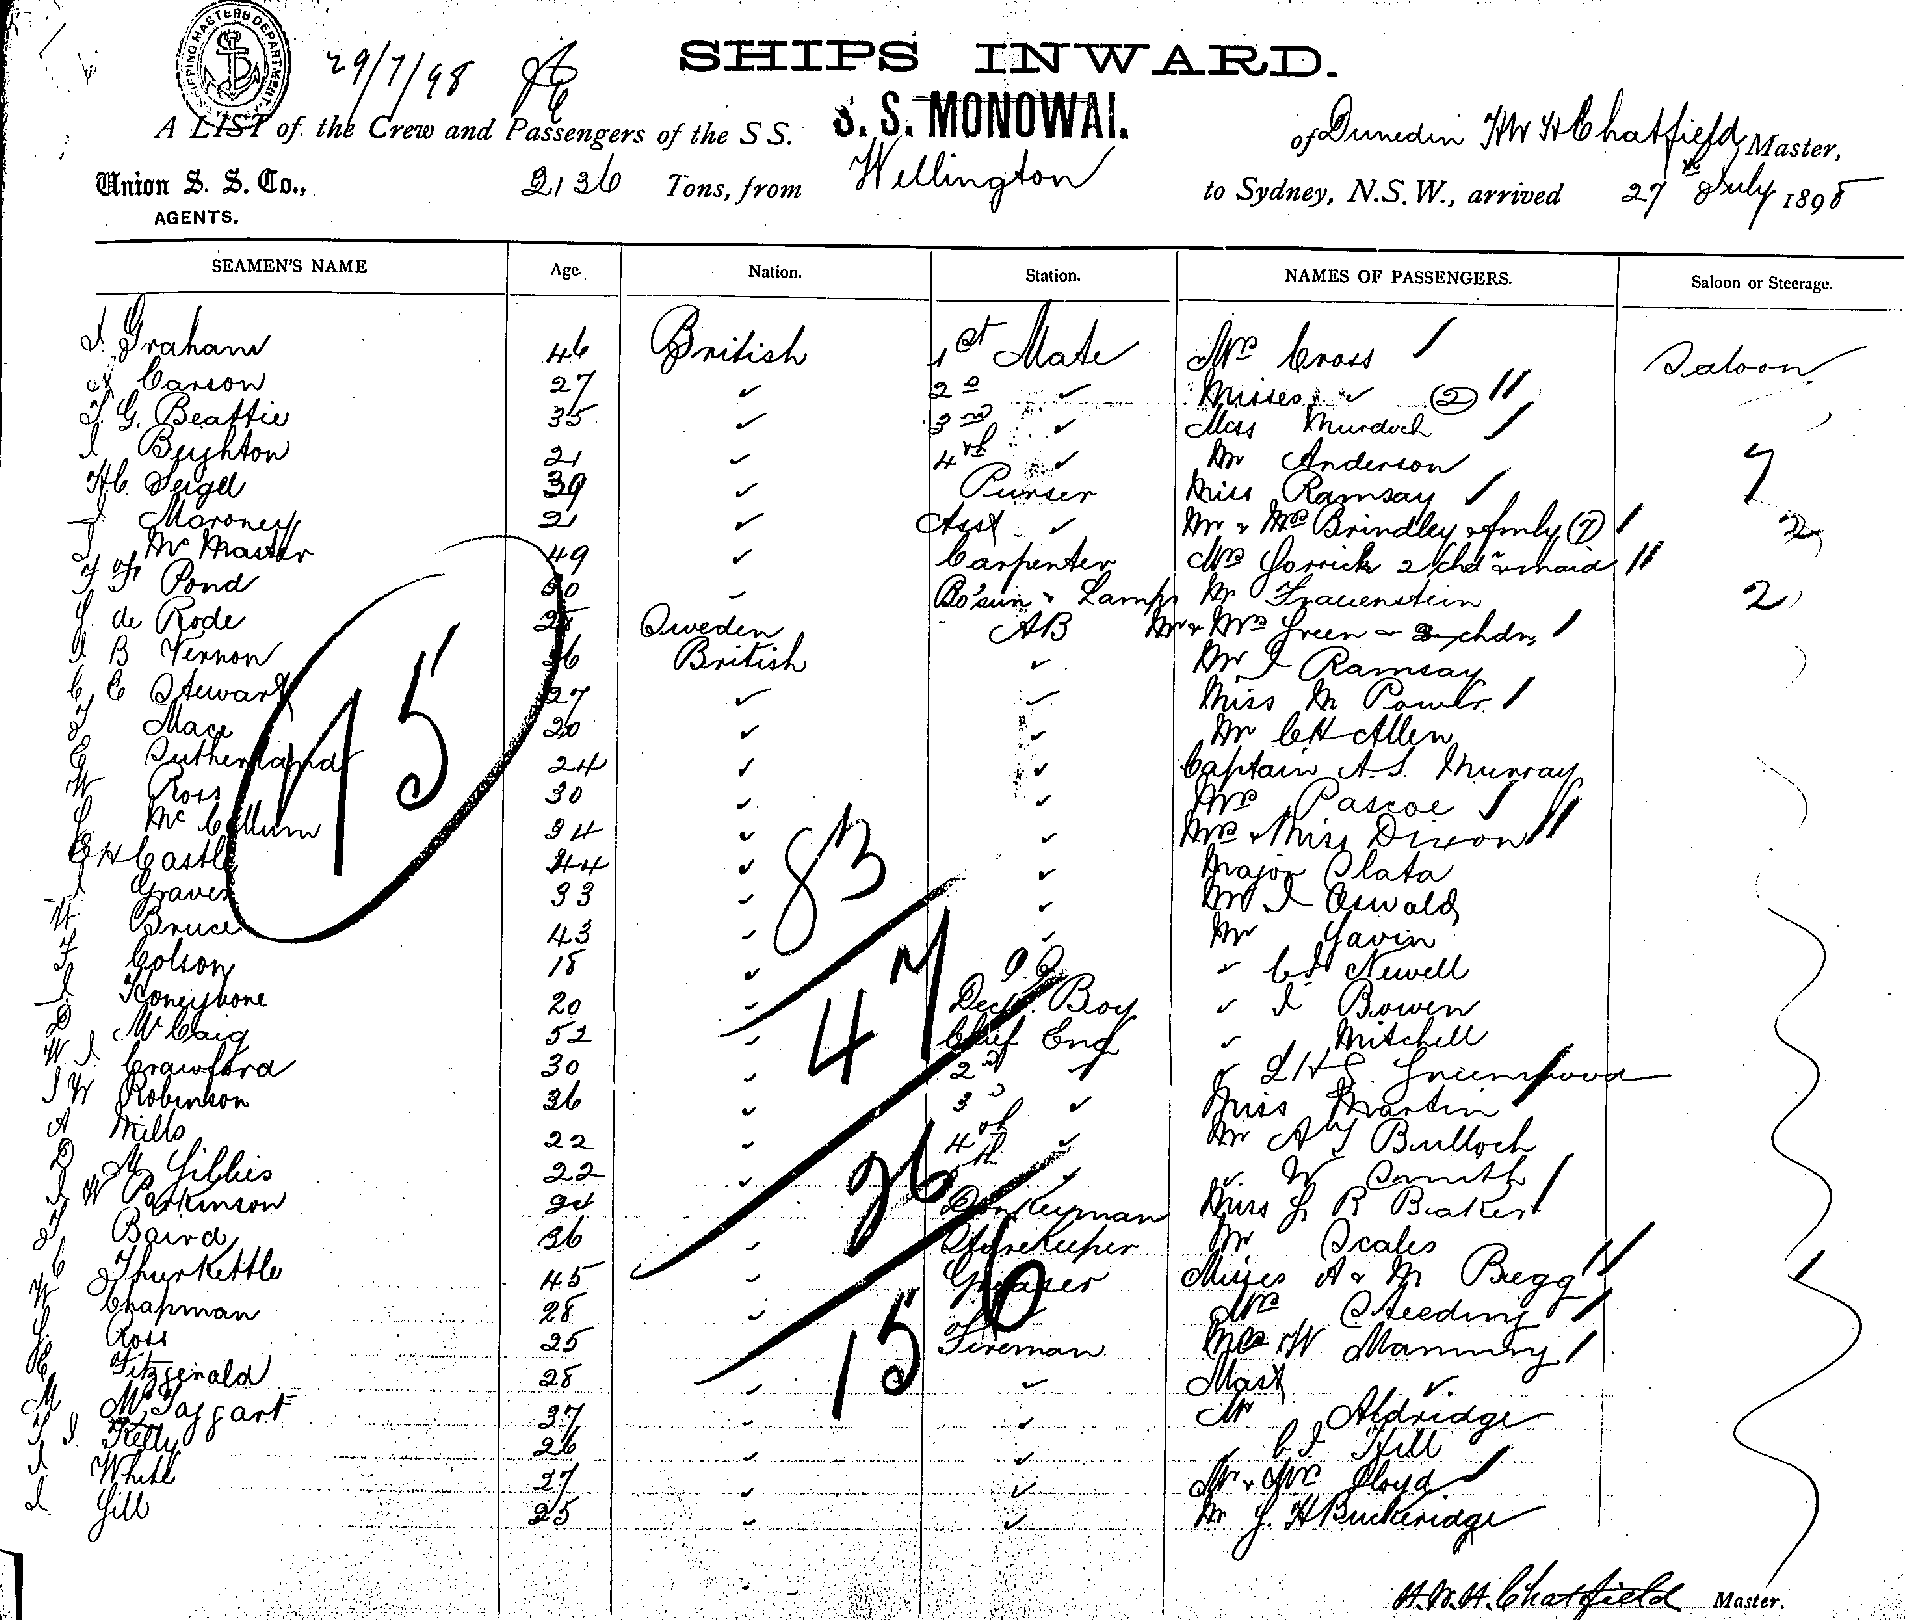 SHIPPING MASTERS DEPARTMENT
29/7/98
SHIPS INWARD.
A LIST of the Crew and Passengers of the S S. S. S. MONOWAI. of Dunedin H W H Chatfield Master,
Union S. S. Co., 2136 Tons, from Wellington to Sydney, N.S.W., arrived 27th July 1898
AGENTS.
SEAMEN'S NAME Age. Nation. Station. NAMES OF PASSENGERS. Saloon or Steerage.
J. Graham 46 British 1st Mate Mrs Cross / Saloon
Carson 27 ✓ 2nd ✓ Misses ✓ (2) //
T. G. Beattie 35 ✓ 3rd ✓ Miss Murdoch /
J Beighton 21 ✓ 4th ✓ Mr Anderson 7
H C. Seigel 39 ✓ Purser Miss Ramsay /
J Maroney 21 ✓ Asst ✓ Mr & Mrs Brindley & fmly (7) / 2
J McMaster 49 ✓ Carpenter Mrs Gorrick 2 chd & maid //
T F Pond 30 ✓ Bo'sun & Lamps Mr Frauenstein 2
S. de Rode 28 Sweden AB Mr & Mrs Green & chdn /
J B Vernon 36 British ✓ Mr J Ramsay
C E Stewart 27 ✓ ✓ Miss M Power /
J Mace 20 ✓ ✓ Mr C H Allen
G Sutherland 24 ✓ ✓ Captain A S. Murray
W Ross 30 ✓ ✓ Mrs Pascoe /
McCallum 34 ✓ ✓ Mrs & Miss Dixon //
G H Castle 44 ✓ ✓ Major Plata
J Graves 33 ✓ ✓ Mr J Oswald
W Bruce 43 ✓ ✓ Mr Gavin
F Colson 18 ✓ O.S. ✓ C J Newell
J Honeybone 20 ✓ Deck Boy ✓ J Bowen
D McCaig 52 ✓ Chief Eng ✓ Mitchell
W J. Crawford 30 ✓ 2nd ✓ ✓ L H S. Greenwood
J W Robinson 36 ✓ 3rd ✓ Miss Martin /
A Mills 22 ✓ 4th ✓ Mr A T Bulloch
D McGillies 22 ✓ ✓ ✓ W Smith
J W Parkinson 34 Donkeyman Miss G R Baker /
J Baird 36 ✓ Storekeeper Mr Scales
C Thurkettle 45 ✓ Greaser Misses A & M Begg // /
W Chapman 28 ✓ ✓ Mrs Steeding /
S. Ross 25 Fireman Mrs W Manning /
H Fitzgerald 28 ✓ ✓ Mast ✓
M McTaggart 37 ✓ ✓ Mr Aldridge
T J. Kelly 26 ✓ ✓ ✓ C J Hill
J White 27 ✓ ✓ Mr & Mrs Lloyd /
J Gill 25 ✓ ✓ Mr G. H Buckeridge
75
83
47
36
15 6
H. W. H. Chatfield Master.